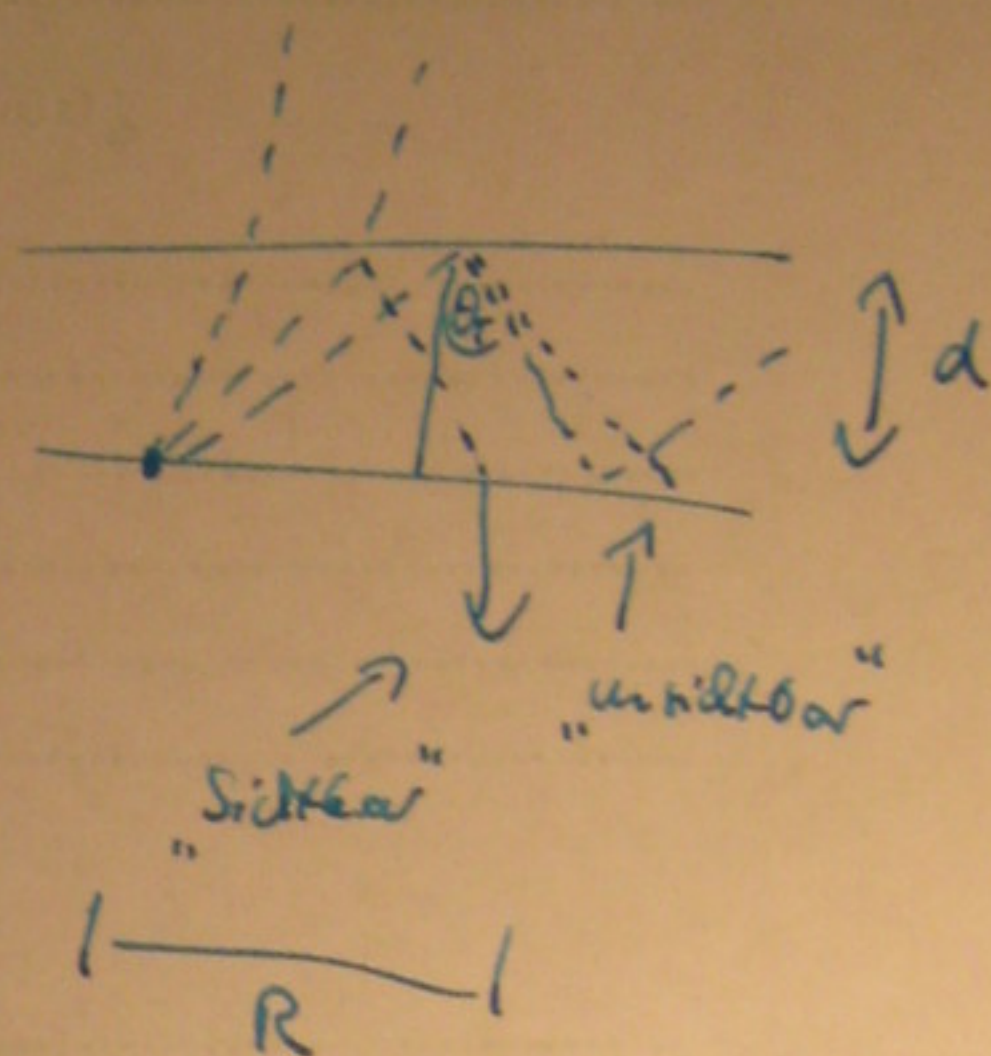 θt
d
„unsichtbar“
„Sichtbar“
R